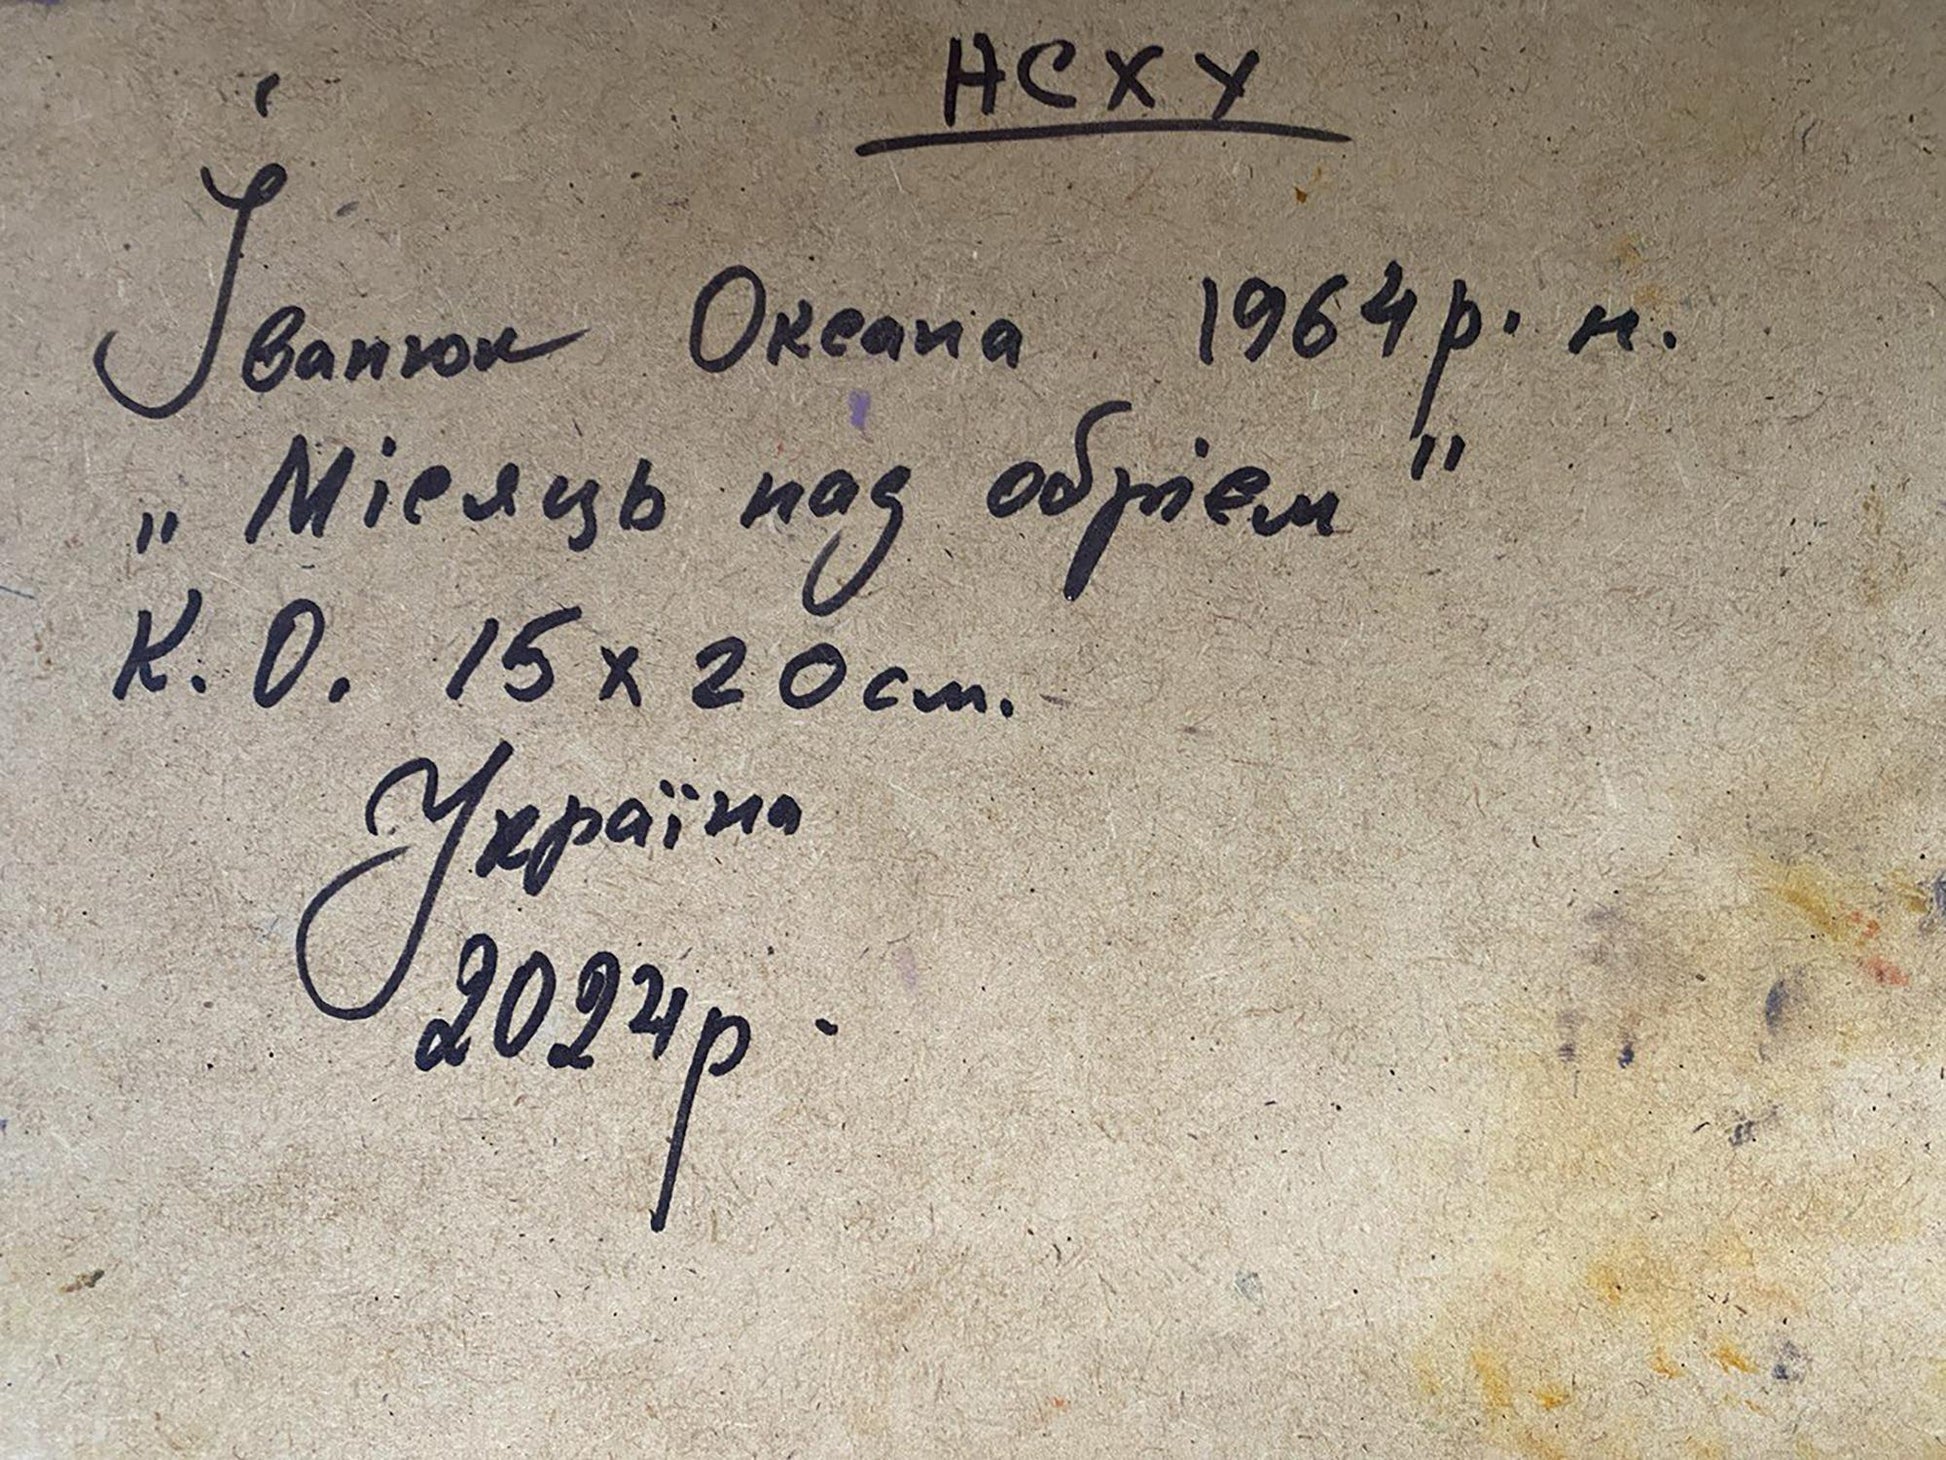 НСХУ
Іванюк Оксана 1964р. н.
„Місяць над обрієм"
К. О. 15 х 20 см.
Україна
2024р.